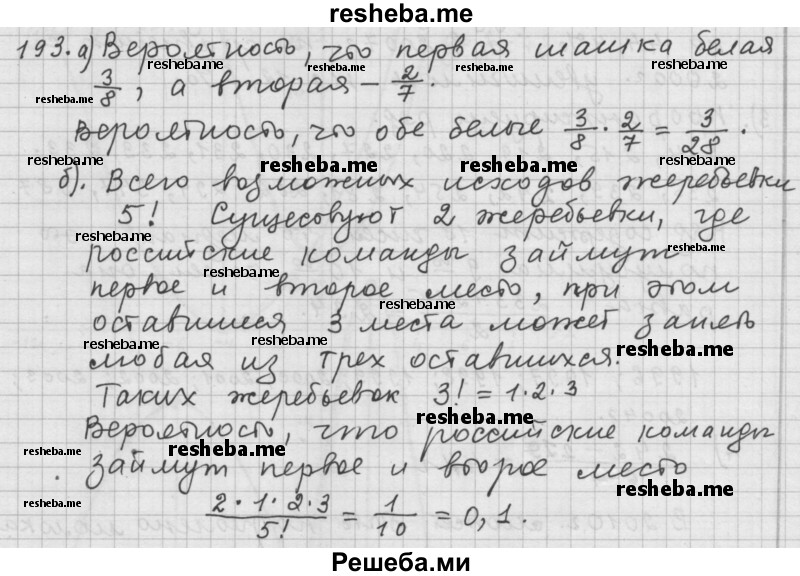 resheba.me
193. а) Вероятность, что первая шашка белая
resheba.me resheba.me resheba.me
3/8, а вторая - 2/7.
resheba.me resheba.me resheba.me
Вероятность, что обе белые 3/8 · 2/7 = 3/28.
resheba.me resheba.me resheba.me
б). Всего возможных исходов жеребьевки
resheba.me
5! Существуют 2 жеребьевки, где
resheba.me
российские команды займут resheba.me
resheba.me
первое и второе место, при этом
resheba.me
оставшиеся 3 места может занять
любая из трех оставшихся.
resheba.me
Таких жеребьевок 3! = 1·2·3
resheba.me
Вероятность, что российские команды
resheba.me resheba.me resheba.me
займут первое и второе место
resheba.me resheba.me resheba.me
2·1·2·3/5! = 1/10 = 0,1.
Решеба.ми